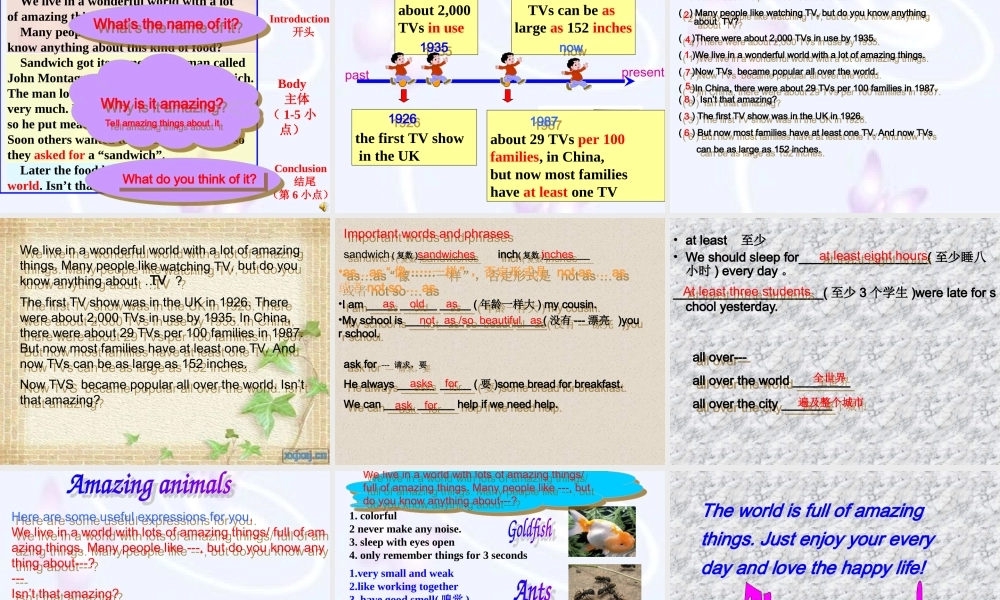 We live in a wonderful world with a lot
of amazing th
What's the name of it?
Many peop
know anything about this kind of food?
Sandwich got its
man called
John Montag
ich.
The man lo
very much.
Why is it amazing?
Tell amazing things about it
so he put mea
Soon others want
so
they asked for a “sandwich”.
Later the food
world. Isn’t tha
What do you think of it?
Introduction
开头
Body
主体
（1-5 小
点）
Conclusion
结尾
（第 6 小点）
about 2,000
TVs in use
TVs can be as
large as 152 inches
1935
now
past
present
1926
the first TV show
in the UK
1987
about 29 TVs per 100
families, in China,
but now most families
have at least one TV
( 2 ) Many people like watching TV, but do you know anything
about TV?
( 4 )There were about 2,000 TVs in use by 1935.
( 1 )We live in a wonderful world with a lot of amazing things.
( 7 )Now TVs became popular all over the world.
( 5 )In China, there were about 29 TVs per 100 families in 1987.
( 8 ) Isn't that amazing?
( 3 ) The first TV show was in the UK in 1926.
( 6 ) But now most families have at least one TV. And now TVs
can be as large as 152 inches.
We live in a wonderful world with a lot of amazing
things. Many people like watching TV, but do you
know anything about ..TV ?
The first TV show was in the UK in 1926. There
were about 2,000 TVs in use by 1935. In China,
there were about 29 TVs per 100 families in 1987.
But now most families have at least one TV. And
now TVs can be as large as 152 inches.
Now TVS became popular all over the world. Isn't
that amazing?
Important words and phrases
sandwich ( 复数 )sandwiches inch( 复数 )inches
•as…as “像……一样”，否定形式是 not as … as
或者 not so … as
•I am as old as ( 年龄一样大 ) my cousin.
•My school is not as /so beautiful as ( 没有 --- 漂亮 )you
r school.
ask for --- 请求，要
He always asks for ( 要 )some bread for breakfast.
We can ask for help if we need help.
• at least 至少
• We should sleep for at least eight hours ( 至少睡八
小时 ) every day 。
At least three students ( 至少 3 个学生 )were late for s
chool yesterday.
all over---
all over the world 全世界
all over the city 遍及整个城市
Amazing animals
Here are some useful expressions for you.
We live in a world with lots of amazing things/ full of am
azing things. Many people like ---, but do you know any
thing about---?
---
Isn't that amazing?
We live in a world with lots of amazing things/
full of amazing things. Many people like ---, but
do you know anything about---?
1. colorful
2. never make any noise.
3. sleep with eyes open
4. only remember things for 3 seconds
Goldfish
1.very small and weak
2.like working together
3. have good smell( 嗅觉 )
Ants
The world is full of amazing
things. Just enjoy your every
day and love the happy life!